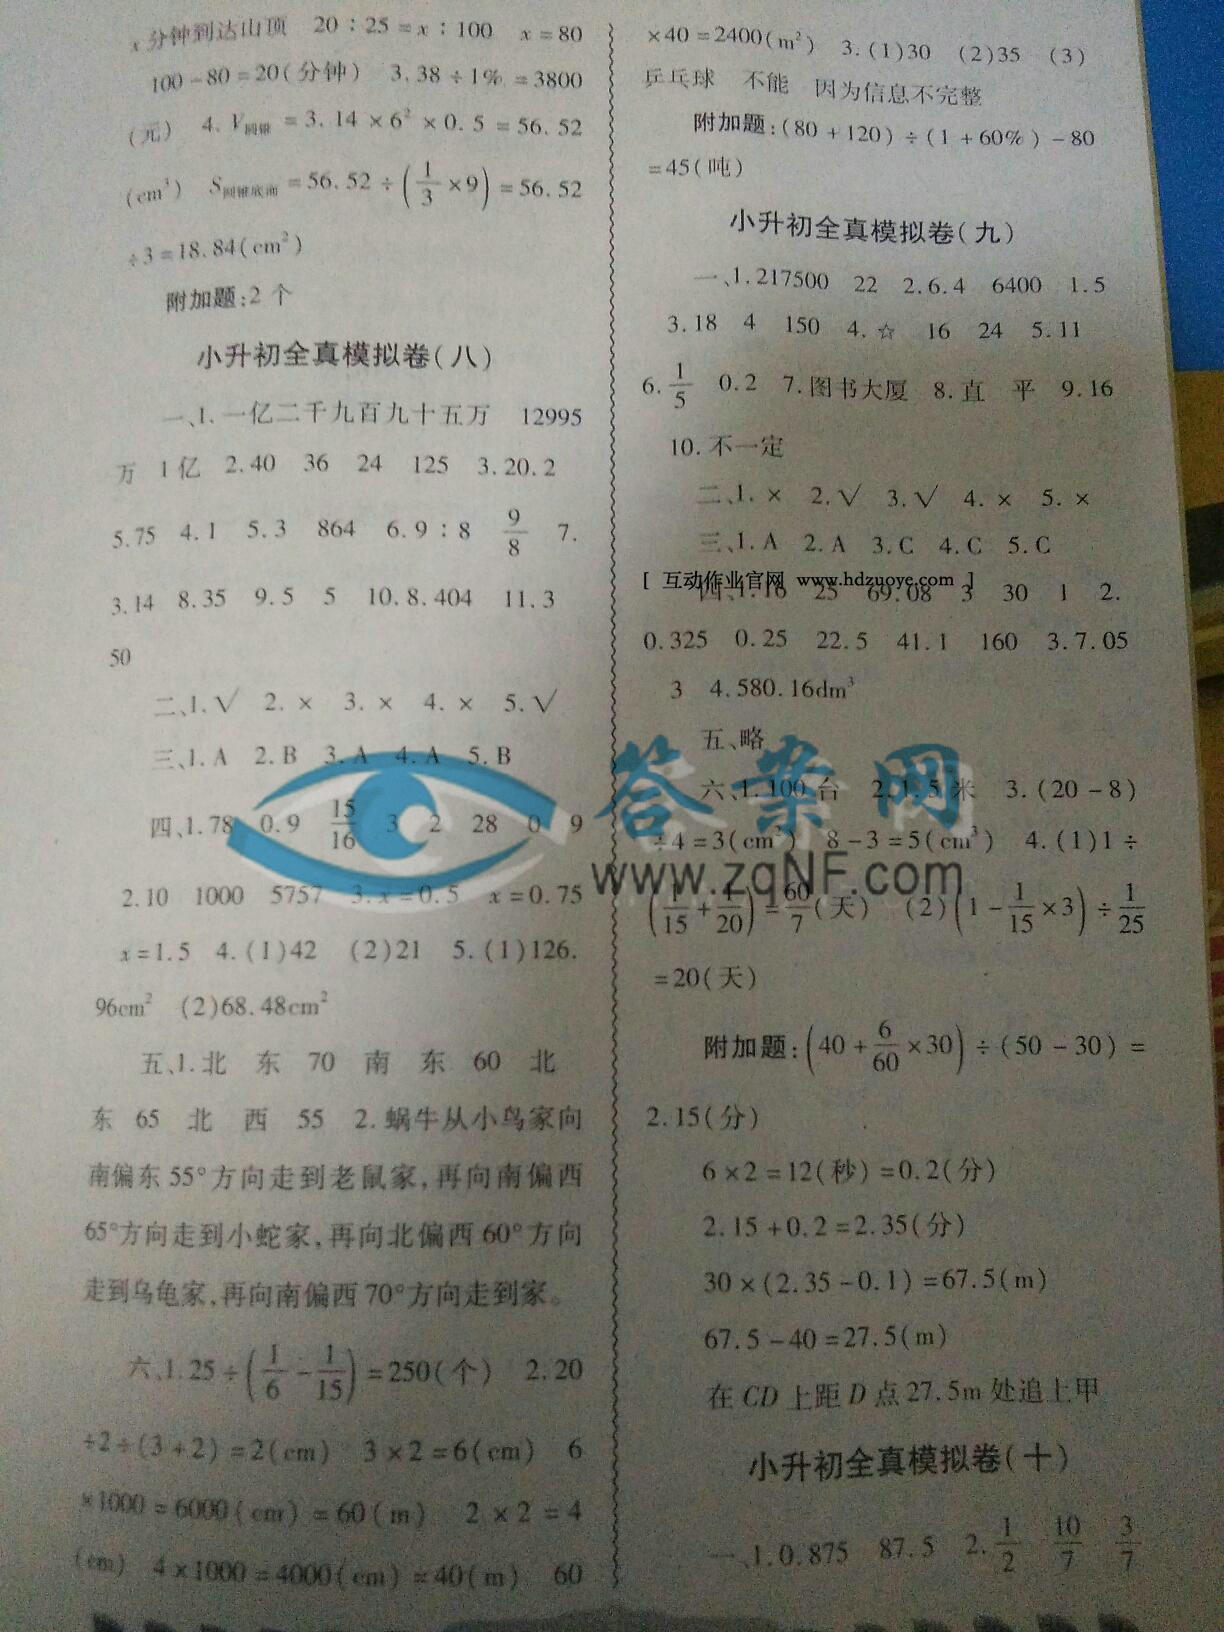 x分钟到达山顶 20∶25=x∶100 x=80
100-80=20(分钟) 3.38÷1%=3800
(元) 4.V圆锥=3.14×6²×0.5=56.52
(cm³) S圆锥底面=56.52÷(1/3×9)=56.52
÷3=18.84(cm²)
附加题:2个
小升初全真模拟卷(八)
一、1.一亿二千九百九十五万 12995
万 1亿 2.40 36 24 125 3.20.2
5.75 4.1 5.3 864 6.9∶8 9/8 7.
3.14 8.35 9.5 5 10.8.404 11.3
50
二、1.√ 2.× 3.× 4.× 5.√
三、1.A 2.B 3.A 4.A 5.B
四、1.78 0.9 15/16 3 2 28 0 9
2.10 1000 5757 3.x=0.5 x=0.75
x=1.5 4.(1)42 (2)21 5.(1)126.
96cm² (2)68.48cm²
五、1.北 东 70 南 东 60 北
东 65 北 西 55 2.蜗牛从小鸟家向
南偏东55°方向走到老鼠家,再向南偏西
65°方向走到小蛇家,再向北偏西60°方向
走到乌龟家,再向南偏西70°方向走到家。
六、1.25÷(1/6-1/15)=250(个) 2.20
÷2÷(3+2)=2(cm) 3×2=6(cm) 6
×1000=6000(cm)=60(m) 2×2=4
(cm) 4×1000=4000(cm)=40(m) 60
×40=2400(m²) 3.(1)30 (2)35 (3)
乒乓球 不能 因为信息不完整
附加题:(80+120)÷(1+60%)-80
=45(吨)
小升初全真模拟卷(九)
一、1.217500 22 2.6.4 6400 1.5
3.18 4 150 4.☆ 16 24 5.11
6.1/5 0.2 7.图书大厦 8.直 平 9.16
10.不一定
二、1.× 2.√ 3.√ 4.× 5.×
三、1.A 2.A 3.C 4.C 5.C
[ 互动作业官网 www.hdzuoye.com ]
四、1.16 25 69.08 3 30 1 2.
0.325 0.25 22.5 41.1 160 3.7.05
3 4.580.16dm³
五、略
六、1.100台 2.1.5米 3.(20-8)
÷4=3(cm²) 8-3=5(cm³) 4.(1)1÷
(1/15+1/20)=60/7(天) (2)(1-1/15×3)÷1/25
=20(天)
附加题:(40+6/60×30)÷(50-30)=
2.15(分)
6×2=12(秒)=0.2(分)
2.15+0.2=2.35(分)
30×(2.35-0.1)=67.5(m)
67.5-40=27.5(m)
在CD上距D点27.5m处追上甲
小升初全真模拟卷(十)
一、1.0.875 87.5 2.1/2 10/7 3/7
答案网
www.zqNF.com